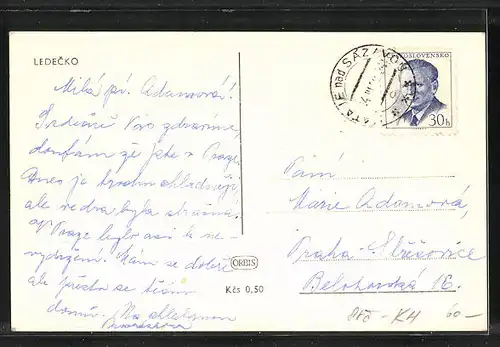 LEDEČKO
Milá pí. Adamová!
Srdečně Vás zdravíme,
doufám že jste v Praze
Dnes je trochu chladněji,
ale vedra byla strašná.
V Praze bylo asi k ne-
vydržení. Mám se dobře
ale přesto se těším
domů. Na shledanou
ORBIS
Kčs 0,50
RATAJE nad SÁZAVOU
ČESKOSLOVENSKO
30h
Paní
Marie Adamová,
Praha - Střešovice
Bělohorská 16.
- KH 60 -